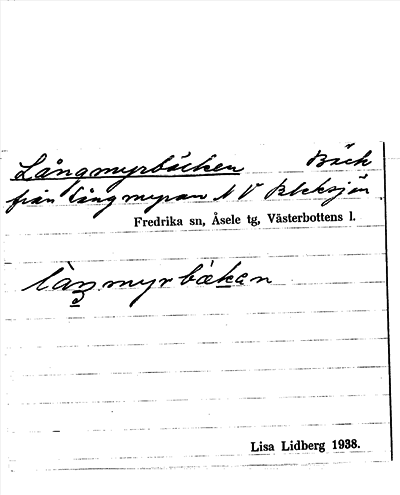 Långmyrbäcken Bäck
från Långmyran N V
Fredrika sn, Åsele tg, Västerbottens l.
Lisa Lidberg 1938.